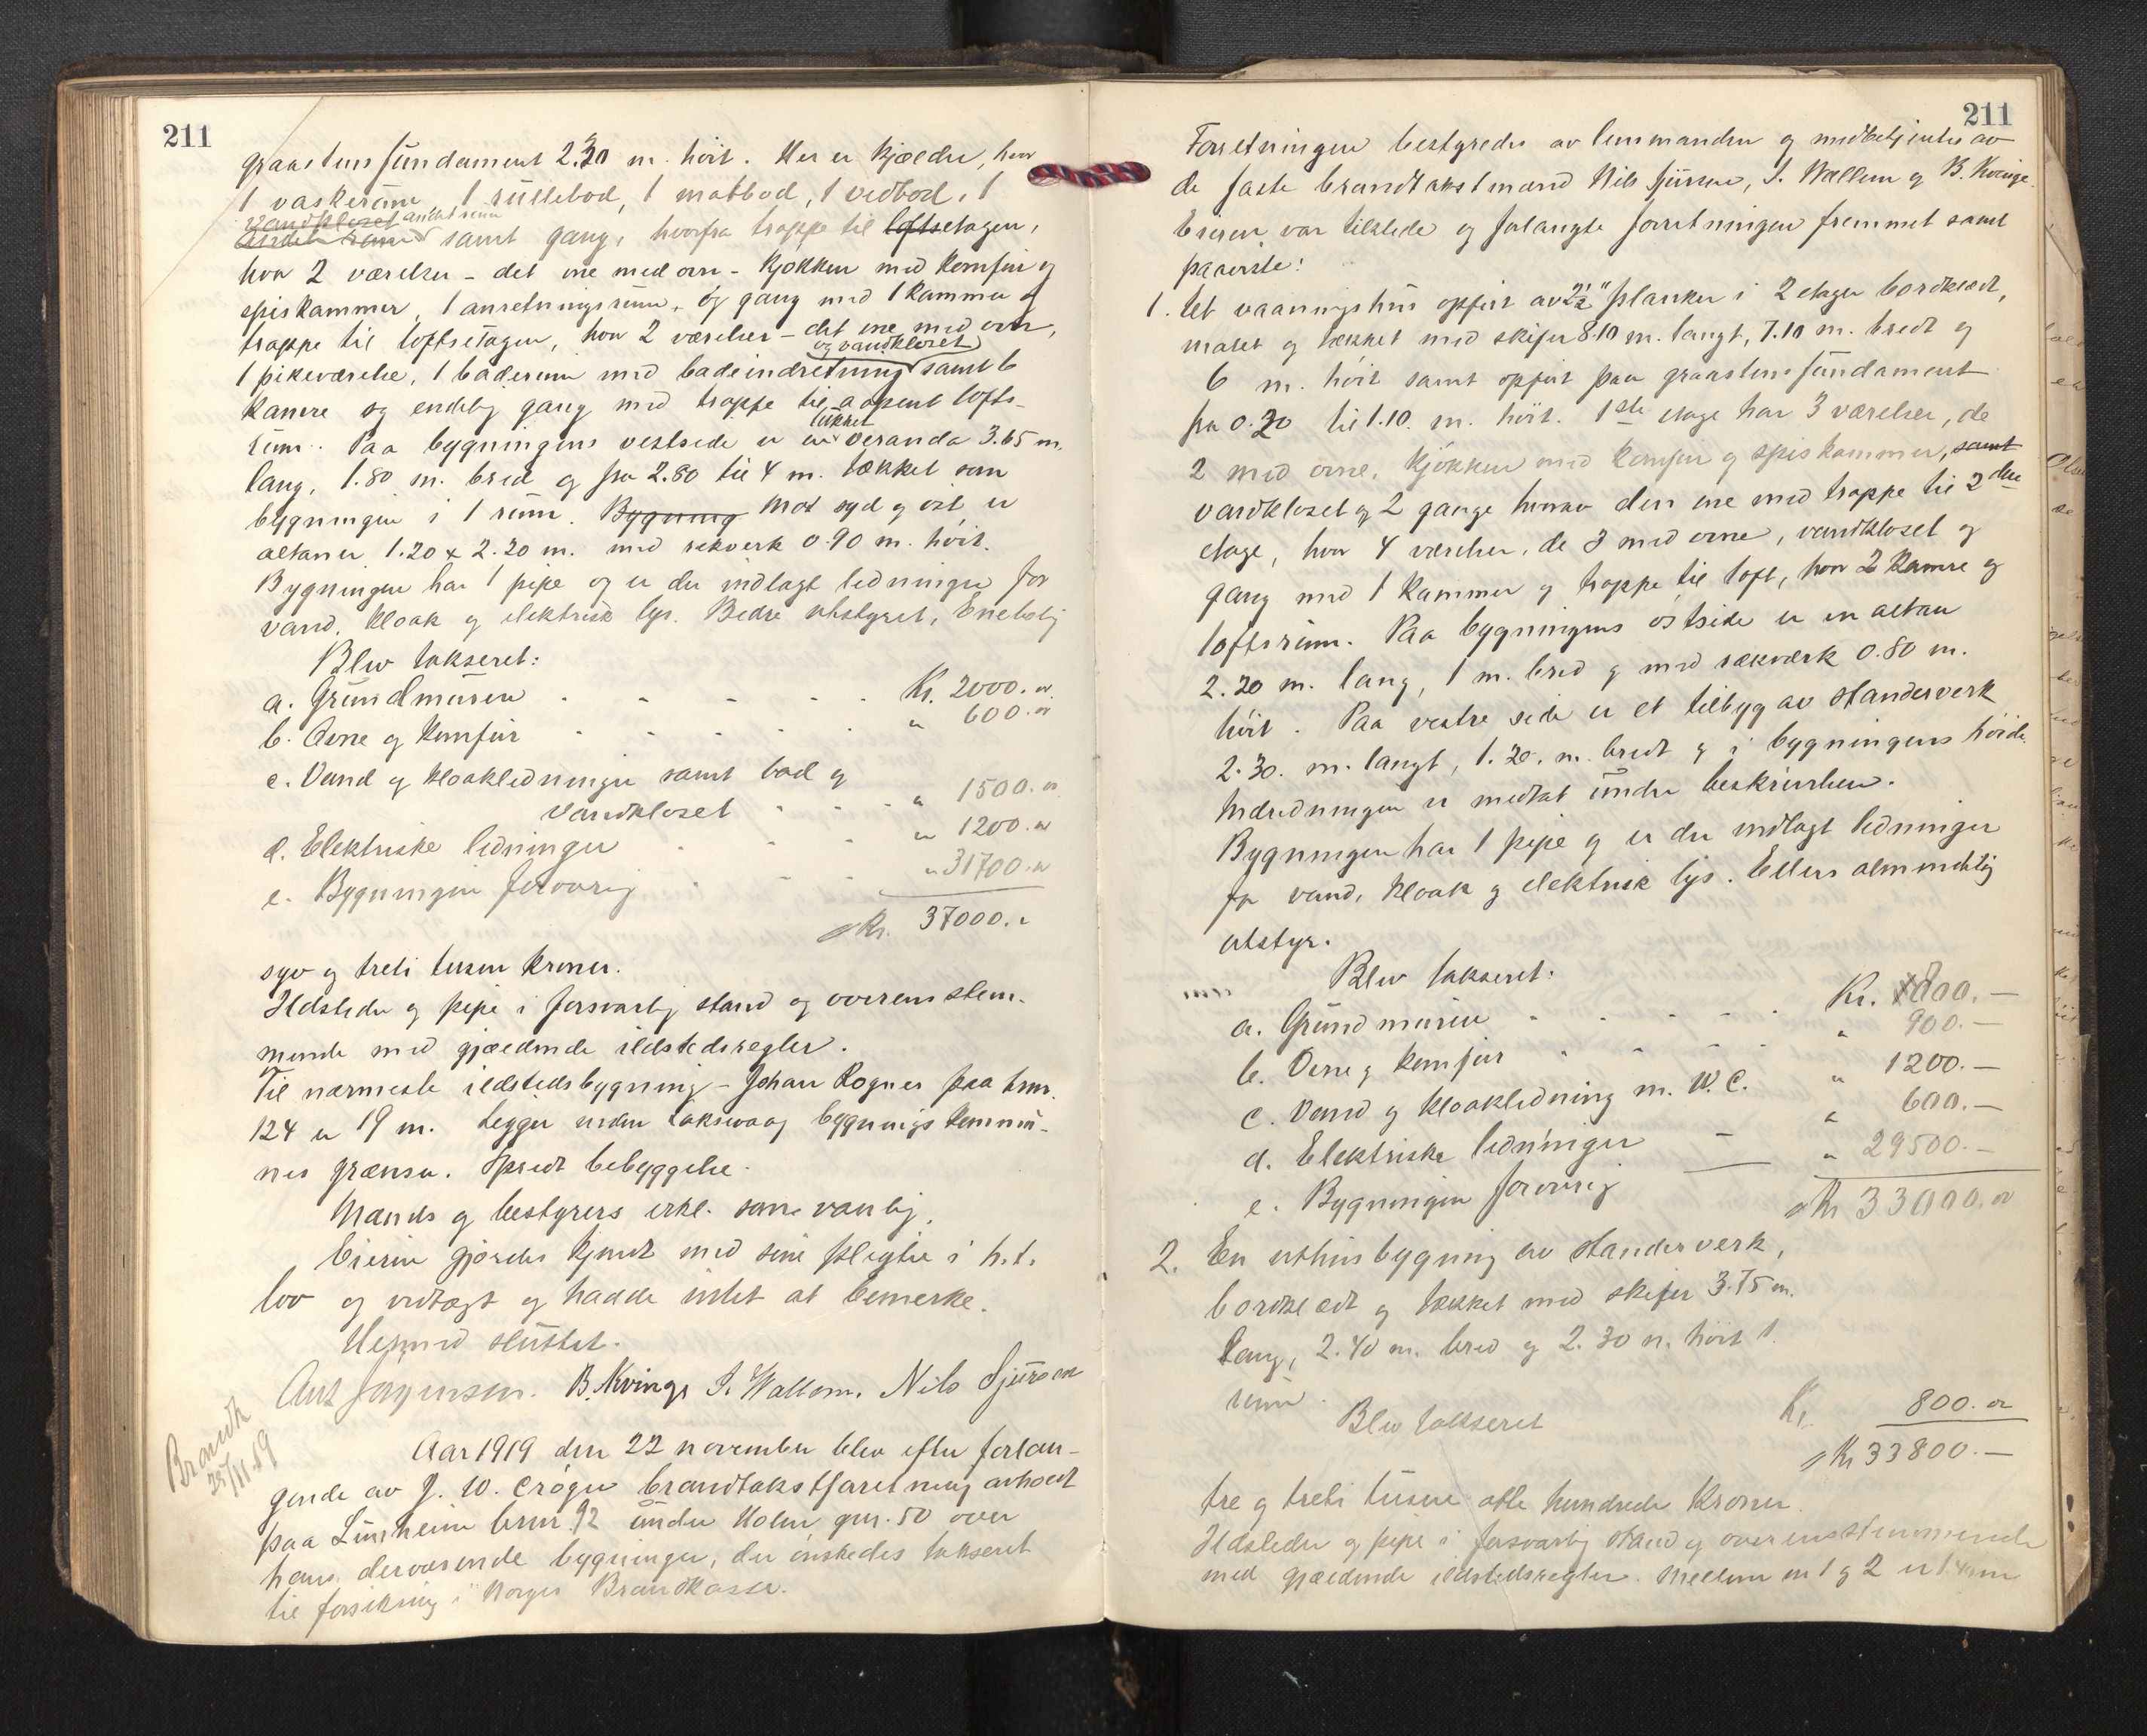 211
graastens fundament 2.30 m. høit. Her er kjælder, hvor
1 vaskerum, 1 rullebod, 1 matbod, 1 vedbod, 1
vandkloset andet rum
andet rum samt gang, hvorfra trappe til loftsetagen,
hvor 2 værelser - det ene med ovn - kjøkken med komfur og
spiskammer, 1 anretningsrum, og gang med 1 kammer og
trappe til loftsetagen, hvor 2 værelser - det ene med ovn,
og vandkloset
1 pikeværelse, 1 baderum med badeindretning samt 6
kamre og endelig gang med trappe til aapent lofts-
lukket
rum. Paa bygningens vestside er en veranda 3.65 m.
lang, 1.80 m. bred og fra 2.80 til 4 m. tækket som
bygningen i 1 rum. Bygning Mot syd og øst er
altaner 1.20 x 2.20 m. med rekverk 0.90 m. høit.
Bygningen har 1 pipe og er der indlagt ledninger for
vand, kloak og elektrisk lys. Bedre utstyret, Enebolig
Blev takseret:
a. Grundmuren Kr. 2000.
b. Ovne og komfur " 600.
c. Vand og kloakledninger samt bad og
vandkloset " 1500.
d. Elektriske ledninger " 1200.
e. Bygningen forøvrig " 31700.
Kr. 37000.
syv og treti tusen kroner.
Ildsteder og pipe i forsvarlig stand og overensstem-
mende med gjældende ildstedsregler.
Til nærmeste ildstedsbygning - Johan Rogner paa brnr.
124 er 19 m. Ligger inden Laksevaag bygningskommu-
nes grænser. Spredt bebyggelse.
Mænds og bestyrers erkl. som vanlig.
Eieren gjordes kjendt med sine pligter i h.t.
lov og vedtægt og hadde intet at bemerke.
Hermed sluttet.
Ant Jørgensen. B. Kvinge I. Wallem. Nils Sjursen
Brandk
25/11.19
Aar 1919 den 22 november blev efter forlan-
gende av J. W. Crøger brandtakstforretning avholdt
paa Lunheim brnr. 92 under Holen gnr. 50 over
hans derværende bygninger, der ønskedes takseret
til forsikring i Norges Brandkasse.
211
Forretningen bestyredes av lensmanden og medbetjentes av
de faste brandtakstmænd Nils Sjursen, I. Wallem og B. Kvinge.
Eieren var tilstede og forlangte forretningen fremmet samt
paaviste:
1. Et vaaningshus opført av 2½" planker i 2 etager bordklædt,
malet og tækket med skifer 8.10 m. langt, 7.10 m. bredt og
6 m. høit samt opført paa graastens fundament
fra 0.20 til 1.10. m. høit. 1ste etage har 3 værelser, de
2 med ovne, kjøkken med komfur og spiskammer, samt
vandkloset og 2 gange hvorav den ene med trappe til 2den
etage, hvor 4 værelser, de 3 med ovne, vandkloset og
gang med 1 kammer og trappe til loft, hvor 2 kamre og
loftsrum. Paa bygningens østside er en altan
2.20 m. lang, 1 m. bred og med rækværk 0.80 m.
høit. Paa vestre side er et tilbyg av standerverk
2.30. m. langt, 1.20. m. bredt og i bygningens høide.
Indredningen er medtat under beskrivelsen.
Bygningen har 1 pipe og er der indlagt ledninger
for vand, kloak og elektrisk lys. Ellers almindelig
utstyr.
Blev takseret:
a. Grundmuren Kr. 800.—
b. Ovne og komfur " 900.—
c. Vand og kloakledning m. W.C. " 1200.—
d. Elektriske ledninger " 600.—
e. Bygningen forøvrig " 29500.—
Kr 33000.
2. En uthusbygning av standerverk,
bordklædt og tækket med skifer 3.75 m.
lang, 2.40 m. bred og 2.30 m. høit 1
rum.
Blev takseret Kr. 800.
Kr 33800.—
tre og treti tusen otte hundrede kroner.
Ildsteder og pipe i forsvarlig stand og overensstemmende
med gjældende ildstedsregler. Mellem nr 1 og 2 er